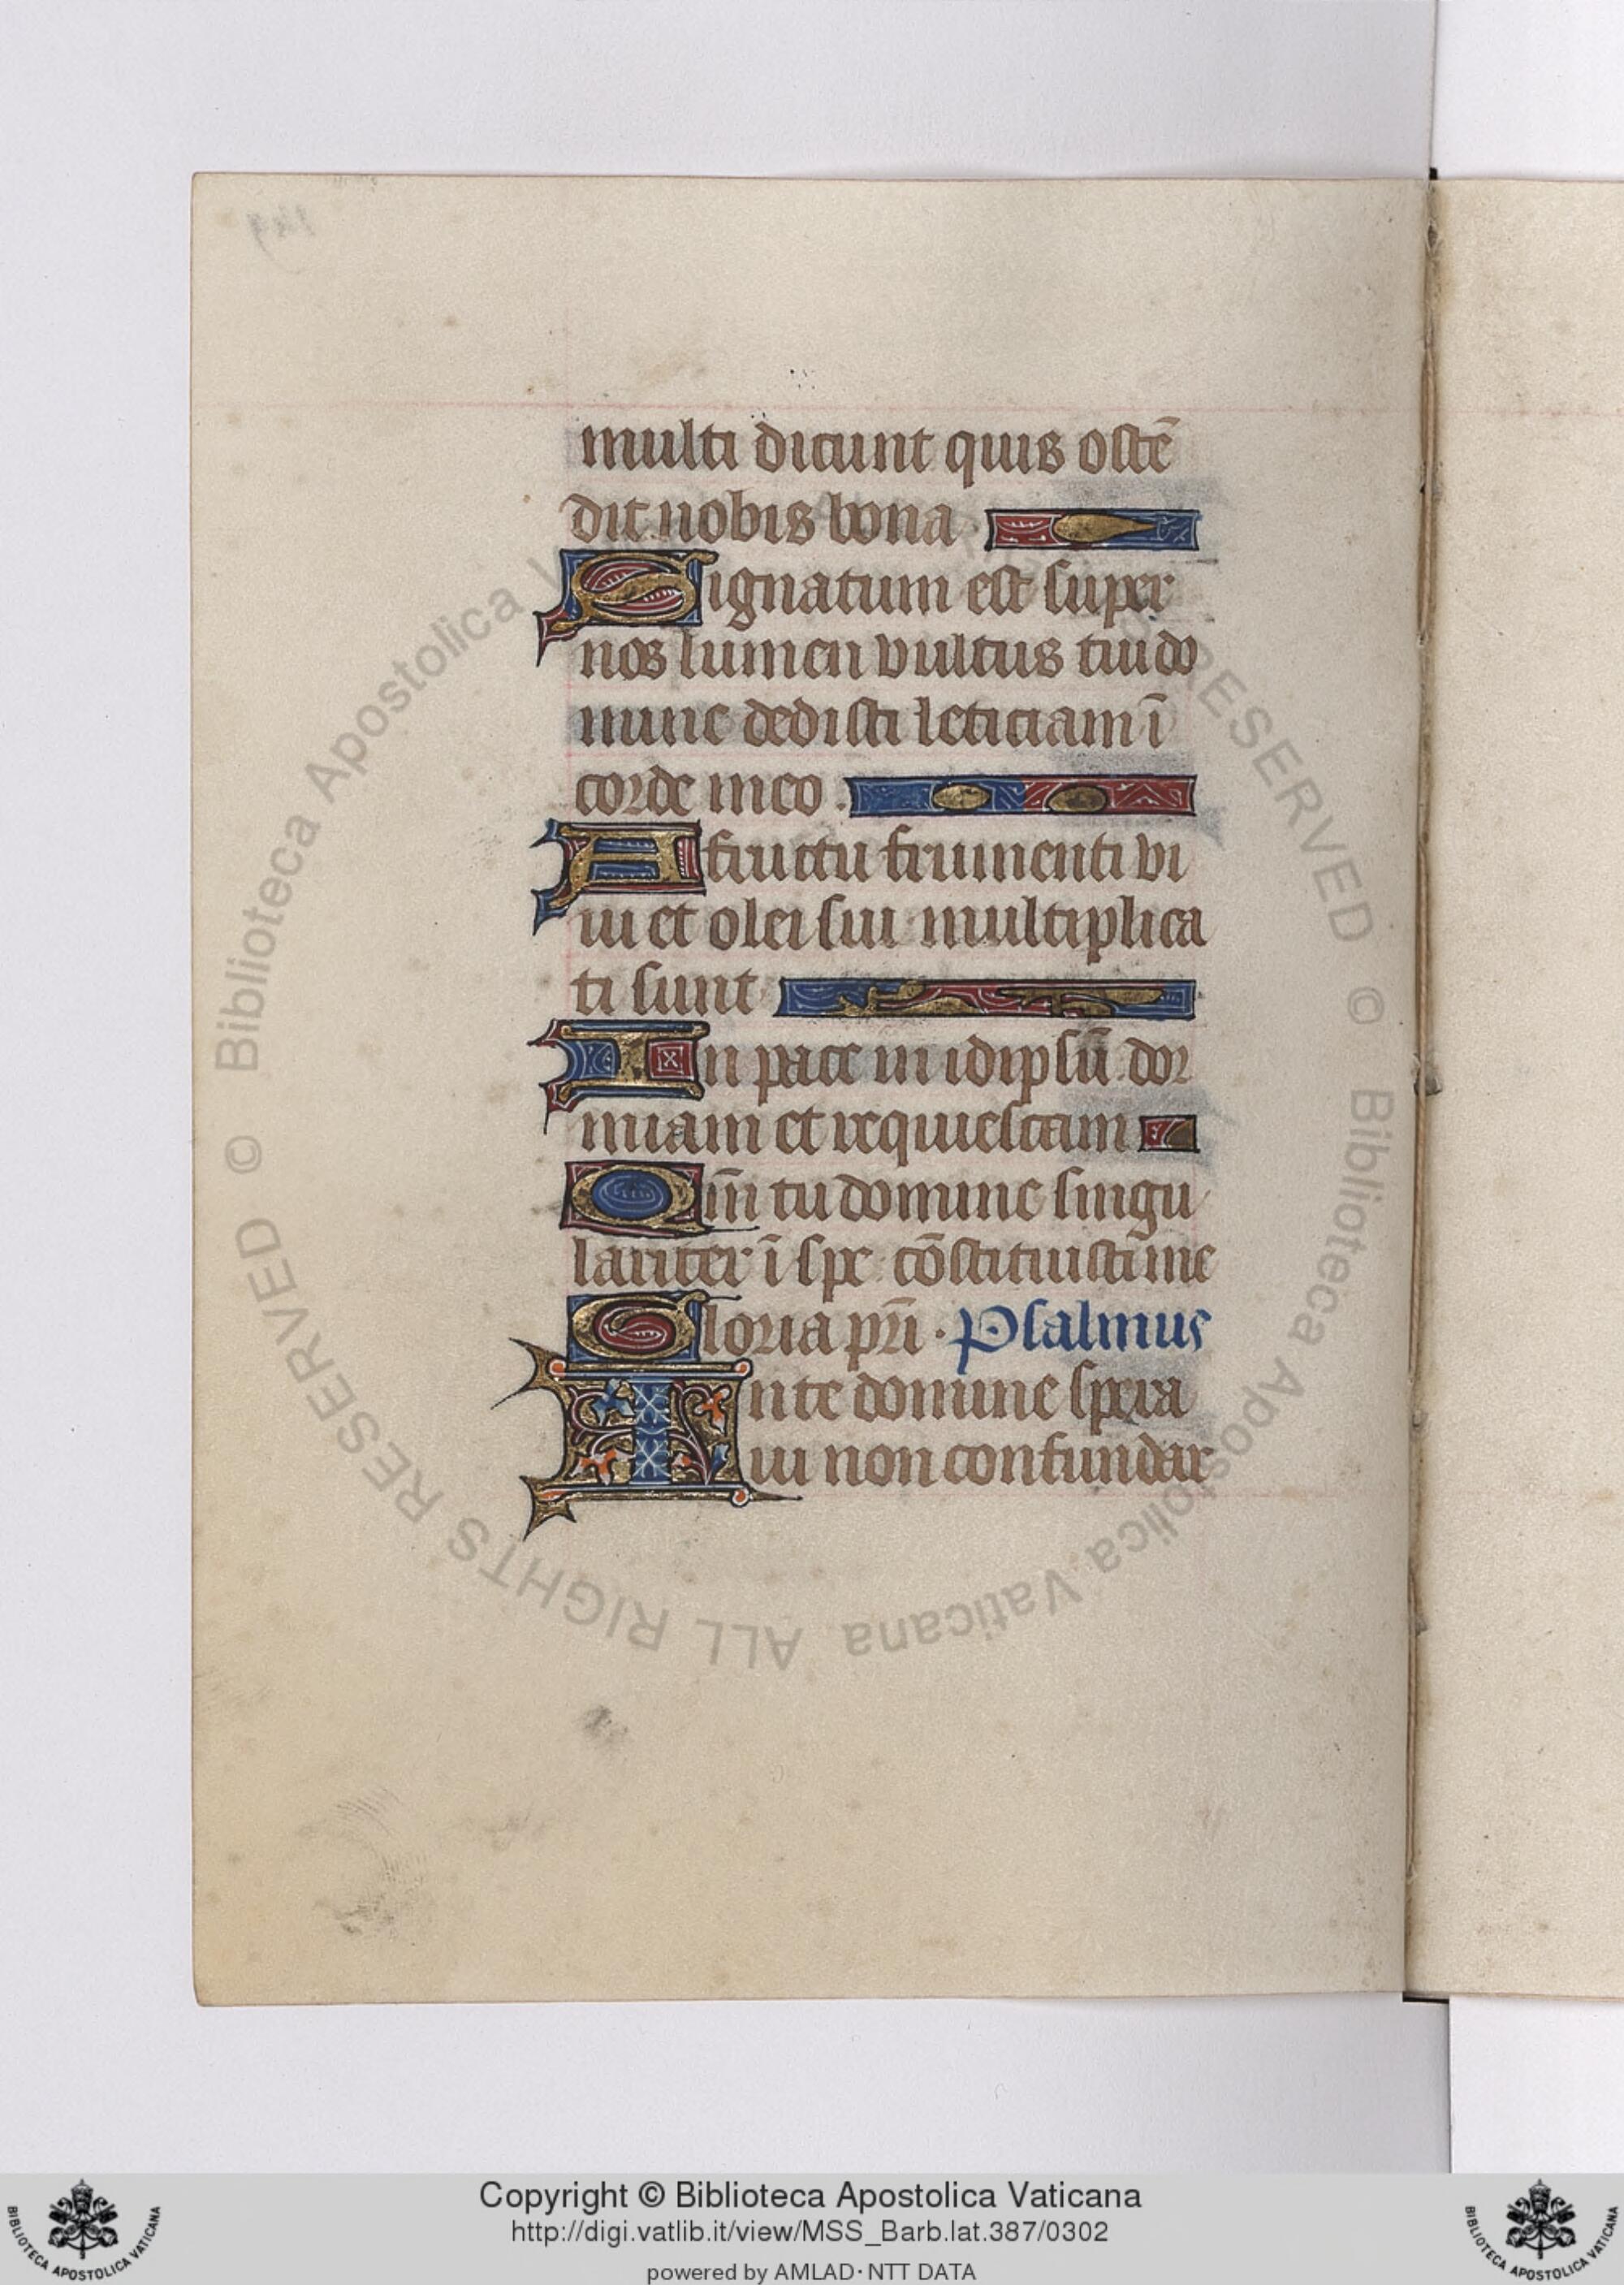 multi dicunt quis ostē
dit nobis bona
Signatum est super
nos lumen vultus tui do
mine dedisti leticiam ī
corde meo.
A fructu frumenti vi
ni et olei sui multiplica
ti sunt
In pace in idipsū dor
miam et requiescam
Qm̄ tu domine singu
lariter ī spe cōstituisti me
Gloria pr̄i · Psalmus
In te domine spera
ui non confundar
Biblioteca Apostolica Vaticana ALL RIGHTS RESERVED © Biblioteca Apostolica Vaticana ALL RIGHTS RESERVED ©
Copyright © Biblioteca Apostolica Vaticana
http://digi.vatlib.it/view/MSS_Barb.lat.387/0302
powered by AMLAD·NTT DATA
BIBLIOTECA APOSTOLICA VATICANA
BIBLIOTECA APOSTOLICA VATICANA